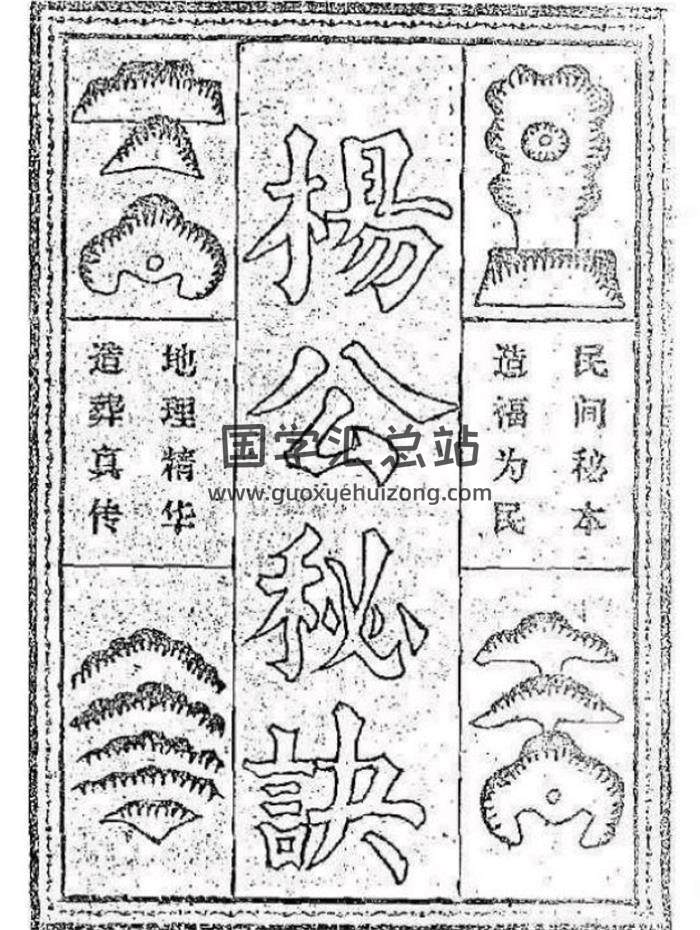 楊公秘訣
民间秘本
造福为民
地理精华
造葬真传
国学汇总站
www.guoxuehuizong.com